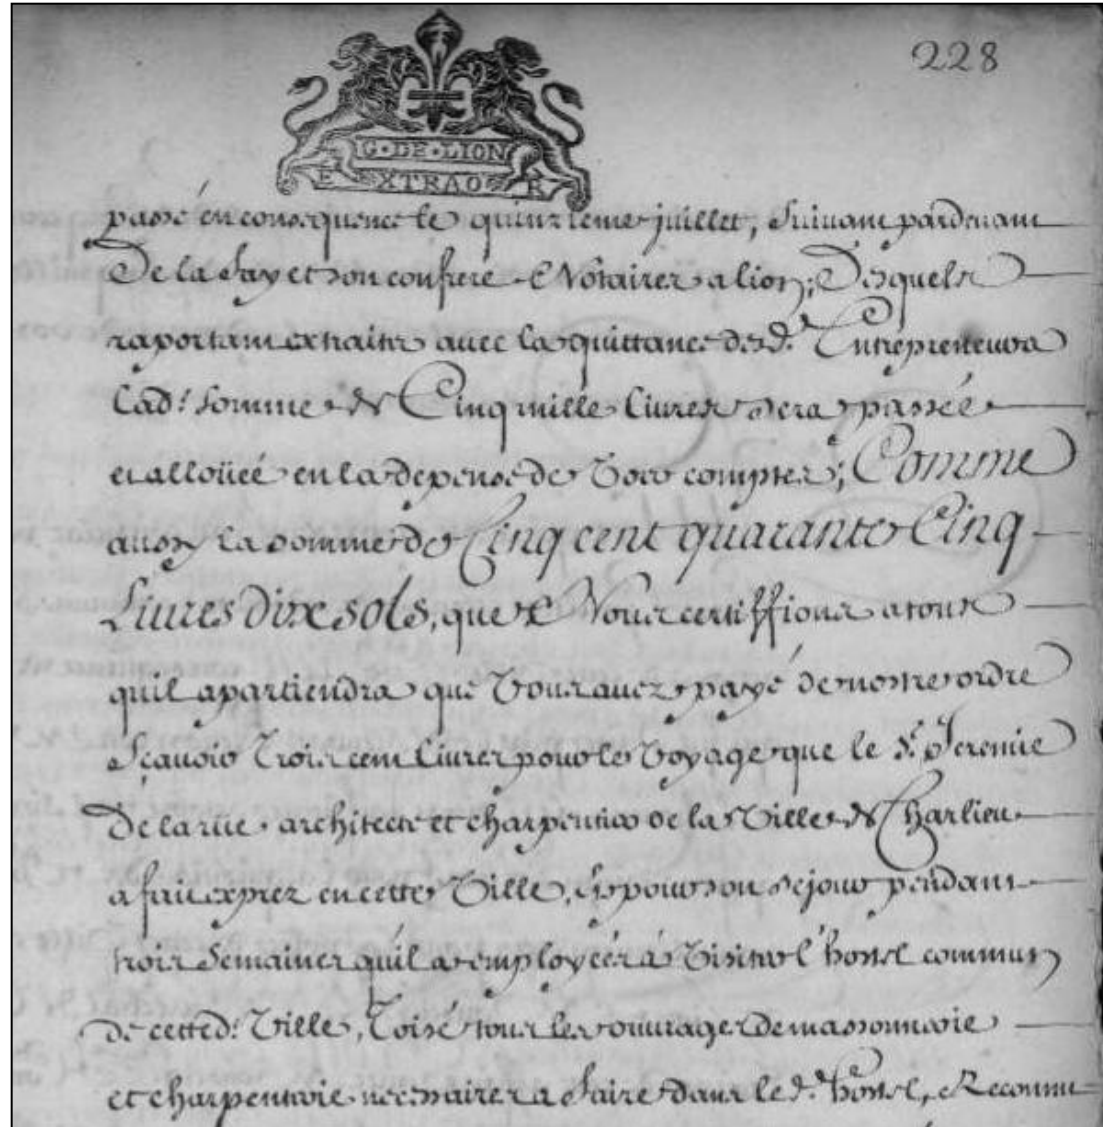 228
G·DE·LION
EXTRAOR
passé en consequence le quinzieme juillet, suivant pardevant
De la fay et son confrere Notaires a lion, Desquels
raportant extraits avec la quittance desd. Entrepreneurs
Lad. somme de Cinq mille livres sera passée
et alloüée en la depense de vos comptes; Comme
aussy la somme de Cinq cent quarante Cinq
Livres dix sols, que Nous certiffions a tous
quil apartiendra que vous avez payé de nostre ordre
Sçavoir Trois cent livres pour le voyage que le S. Jeremie
De la rüe architecte et charpentier de la Ville de Charlieu
a fait exprez en cette Ville, et pour son sejour pendant
trois semaines quil a employées à visiter l'hostel commun
de cetted. Ville, Toisé tous les ouvrages de massonnerie
et charpenterie necessaires a faire dans led. hostel, Reconnu